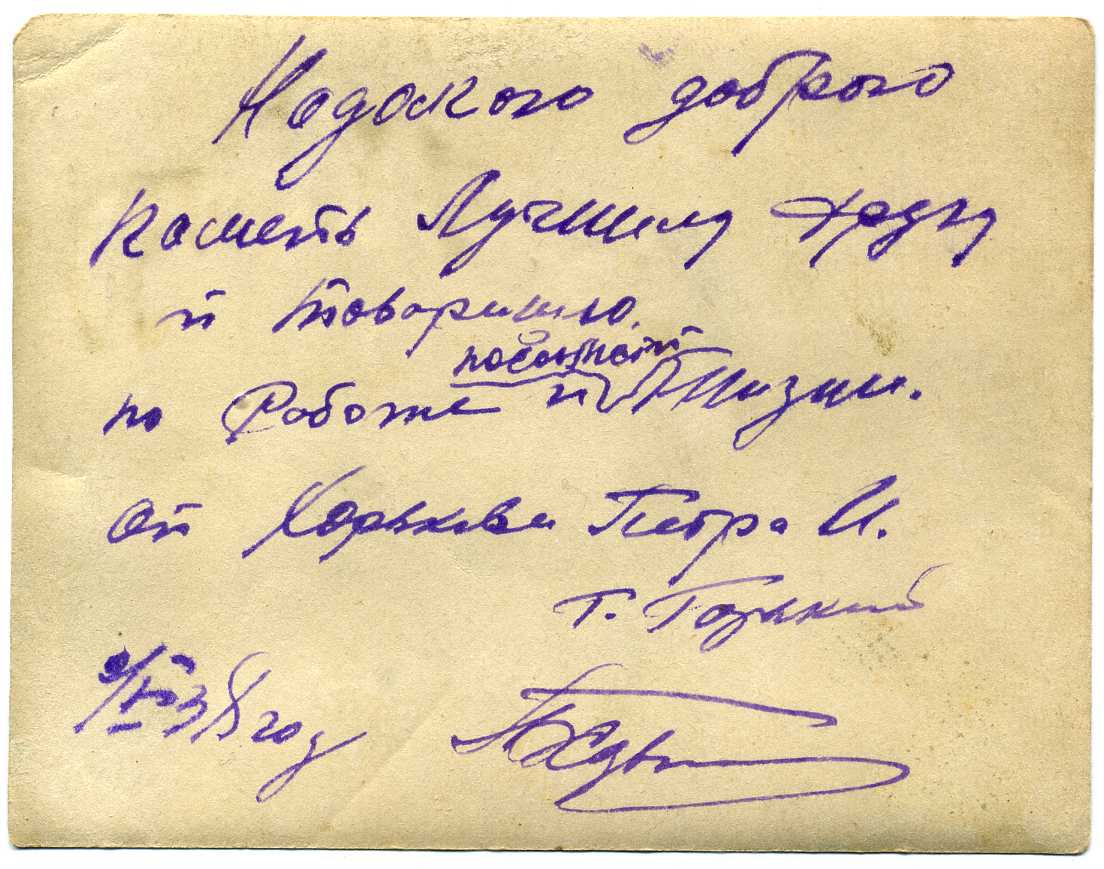 На долго доброго
память Лучшему другу
и товарищю
по Работе и Жизни.
от Хорькова Петра И.
г. Горький
38 год